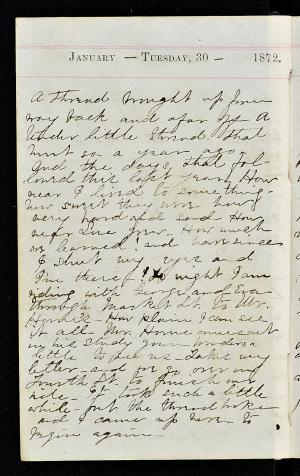 JANUARY — TUESDAY, 30 — 1872.
A thread brought up from
way back and afar off A
tender little thread that
went so a year ago
And the days that fol-
lowed this last year. How
near I lived to something—
how sweet they were how
very hard and sad How
we learned! and have since
I shut my eyes and
I'm there! To night I am
riding with George and Eva
through Market St. to Mr.
How plain I can see
it all Mr. Horne comes out
in his study gown
little to see us— takes my
letter— and we go over on
Fourth St. to finish our
ride— it took such a little
while— but the thread broke
and I came up here— to
begin again—